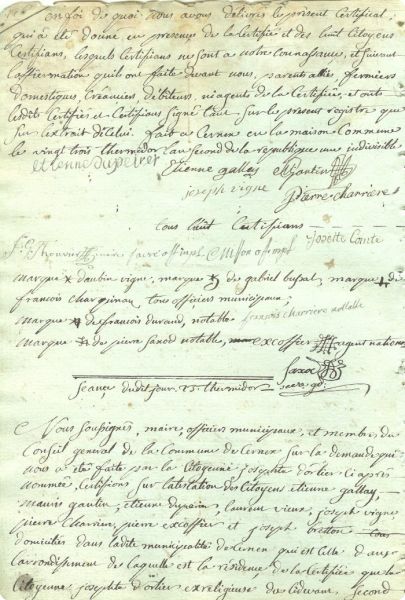 en foi de quoi nous avons délivrés le present Certificat,
qui a été donné en presence de la Certifiée et des huit Citoyens
Certifians, lesquels Certifians ne sont a notre Connaissance, et suivant
l'affirmation qu'ils ont faite devant nous, parents alliés, fermiers
domestiques, Créanciers débiteurs, ni agents de la Certifiée, et ont
lesdits Certifiés et Certifians Signé tant sur le present registre que
sur l'extrait d'icelui. fait a Cernex en la maison Commune
le vingt trois thermidor l'an second de la republique une indivisible
etienne dupetret
Etienne gallay
M gautin
joseph vigne
pierre charriere
tous huit Certifians
josette Comte
maire
marque × d'aubin vigne, marque de gabriel bussat, marque de
françois charquinau tous officiers municipaux;
marque de francois durand, notable
françois charriere notable
marque de pierre saxod notable, excoffier agent national
saxod
secre. gr.
Seance dudit jour 23 thermidor
Nous soussignés maire, officiers municipaux, et membres du
Conseil general de la Commune de Cernex sur la demande qui
nous a été faite par la Citoyenne josephte d'ortier ci après
nommée, Certifions sur l'atestation des Citoyens etienne gallay,
mauris gautin, etienne durain, laurent vieux, joseph vigne
pierre charriere, pierre excoffier et joseph bretton tous
domiciliés dans ladite municipalité de Cernex qui est celle dans
l'arrondissement de laquelle est la résidence, de la Certifiée que la
Citoyenne josephte d'ortier exreligieuse du cidevant second